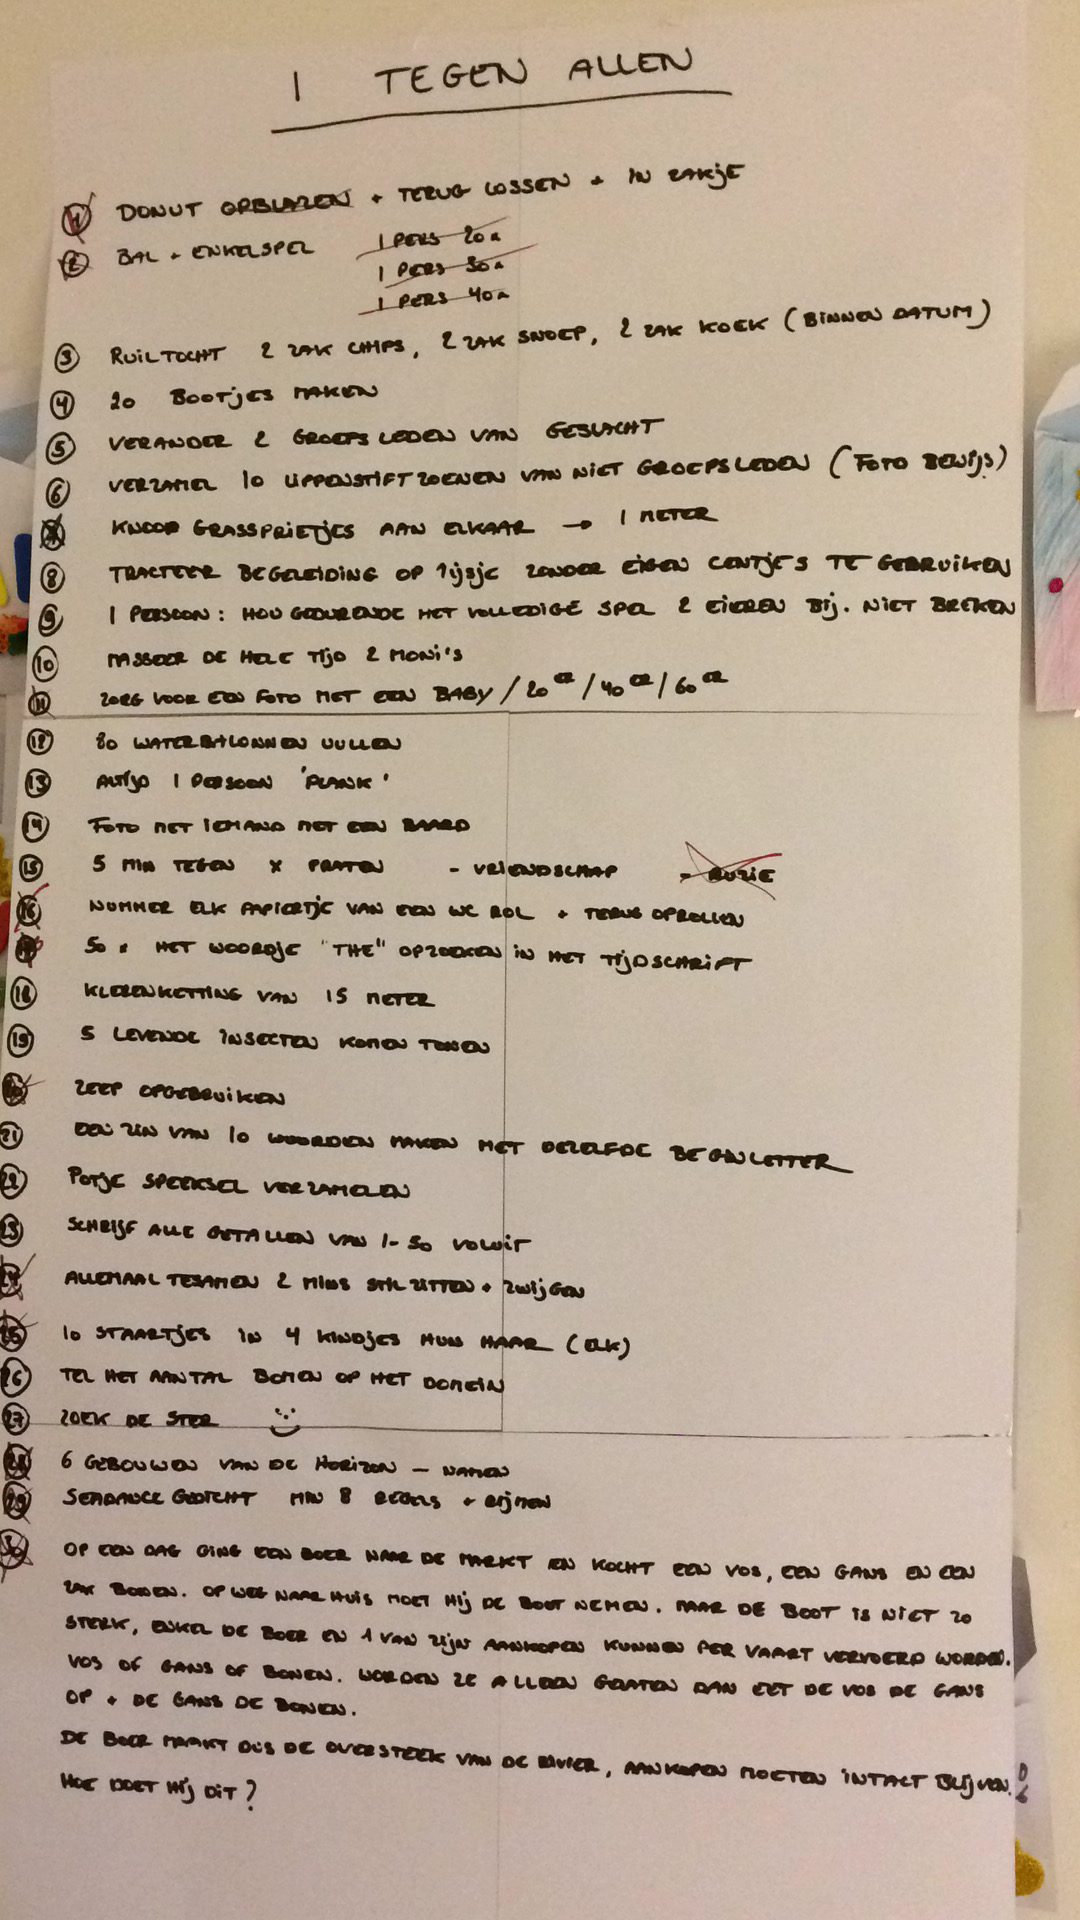 1 TEGEN ALLEN
1 DONUT OPBLAZEN + TERUG LOSSEN + IN ZAKJE
2 BAL + ENKELSPEL 1 PERS 20
1 PERS 30
1 PERS 40
3 RUILTOCHT 2 ZAK CHIPS, 2 ZAK SNOEP, 2 ZAK KOEK (BINNEN DATUM)
4 20 BOOTJES MAKEN
5 VERANDER 2 GROEPSLEDEN VAN GESLACHT
6 VERZAMEL 10 LIPPENSTIFTZOENEN VAN NIET GROEPSLEDEN (FOTO BEWIJS)
7 KNOOP GRASSPRIETJES AAN ELKAAR → 1 METER
8 TRACTEER BEGELEIDING OP IJSJE ZONDER EIGEN CENTJES TE GEBRUIKEN
9 1 PERSOON: HOU GEDURENDE HET VOLLEDIGE SPEL 2 EIEREN BIJ. NIET BREKEN
10 MASSEER DE HELE TIJD 2 MONI'S
11 ZORG VOOR EEN FOTO MET EEN BABY / 20ER / 40ER / 60ER
12 20 WATERBALONNEN VULLEN
13 ALTIJD 1 PERSOON 'PLANK'
14 FOTO MET IEMAND MET EEN BAARD
15 5 MIN TEGEN X PRATEN - VRIENDSCHAP - RUZIE
16 NUMMER ELK PAPIERTJE VAN EEN WC ROL + TERUG OPROLLEN
17 50 x HET WOORDJE "THE" OPZOEKEN IN HET TIJDSCHRIFT
18 KLERENKETTING VAN 15 METER
19 5 LEVENDE INSECTEN KOMEN TONEN
20 ZEEP OPGEBRUIKEN
21 EEN ZIN VAN 10 WOORDEN MAKEN MET DEZELFDE BEGINLETTER
22 POTJE SPEEKSEL VERZAMELEN
23 SCHRIJF ALLE GETALLEN VAN 1-50 VOLUIT
24 ALLEMAAL TESAMEN 2 MINS STIL ZITTEN + ZWIJGEN
25 10 STAARTJES IN 4 KINDJES HUN HAAR (ELK)
26 TEL HET AANTAL BOMEN OP HET DOMEIN
27 ZOEK DE STER
28 6 GEBOUWEN VAN DE HORIZON - NAMEN
29 SENDANCE GEDICHT MIN 8 REGELS + RIJMEN
30 OP EEN DAG GING EEN BOER NAAR DE MARKT EN KOCHT EEN VOS, EEN GANS EN EEN
ZAK BONEN. OP WEG NAAR HUIS MOET HIJ DE BOOT NEMEN. MAAR DE BOOT IS NIET ZO
STERK, ENKEL DE BOER EN 1 VAN ZIJN AANKOPEN KUNNEN PER VAART VERVOERD WORDEN.
VOS OF GANS OF BONEN. WORDEN ZE ALLEEN GELATEN DAN EET DE VOS DE GANS
OP + DE GANS DE BONEN.
DE BOER MAAKT DUS DE OVERSTEEK VAN DE RIVIER, AANKOPEN MOETEN INTACT BLIJVEN.
HOE DOET HIJ DIT?